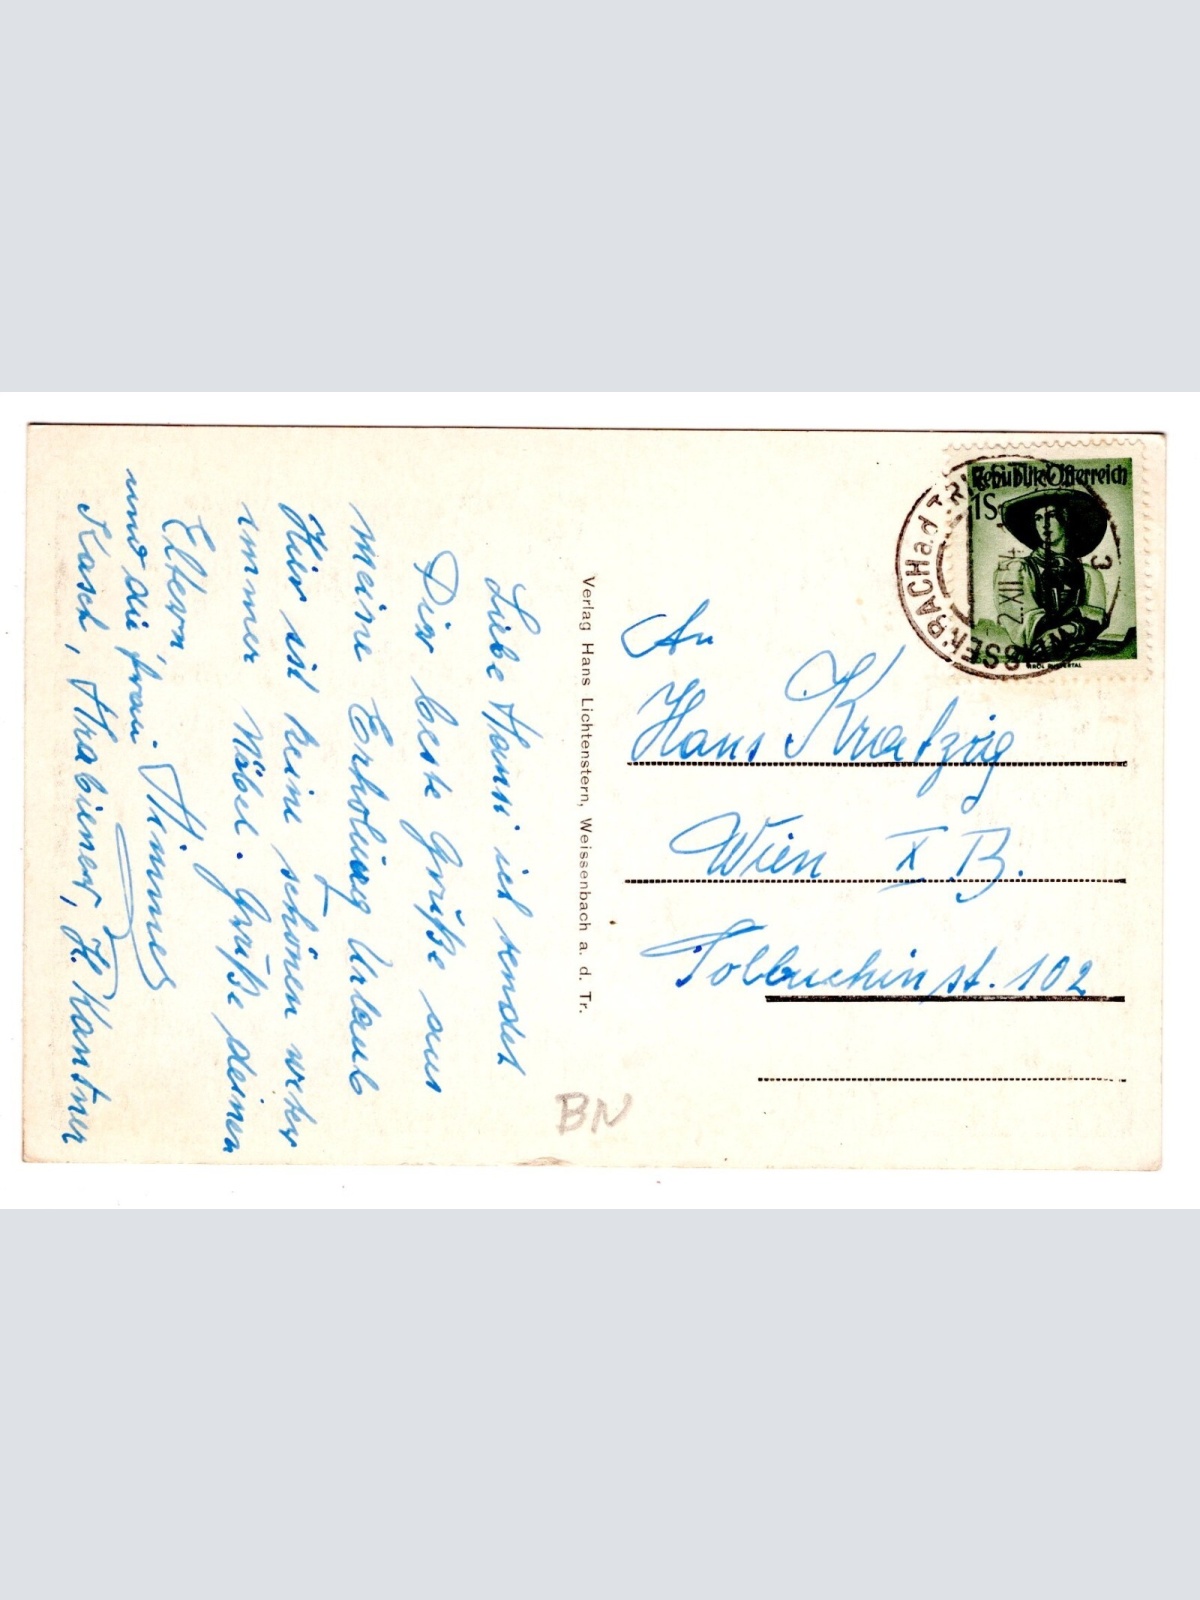 Liebe Hansi ich sendet
Dir beste Grüße aus
meine Erholung Urlaub
Hier ist keine schönen
immer Nöbel. Grüße deinen
Eltern
und die
Kasch, H. Kantner
Verlag Hans Lichtenstern, Weissenbach a. d. Tr.
Republik Österreich
1S
WEISSENBACH a.d. TR
2.XII.54
3
An
Hans Kratzig
Wien X B.
Tolbuchinst. 102
BN